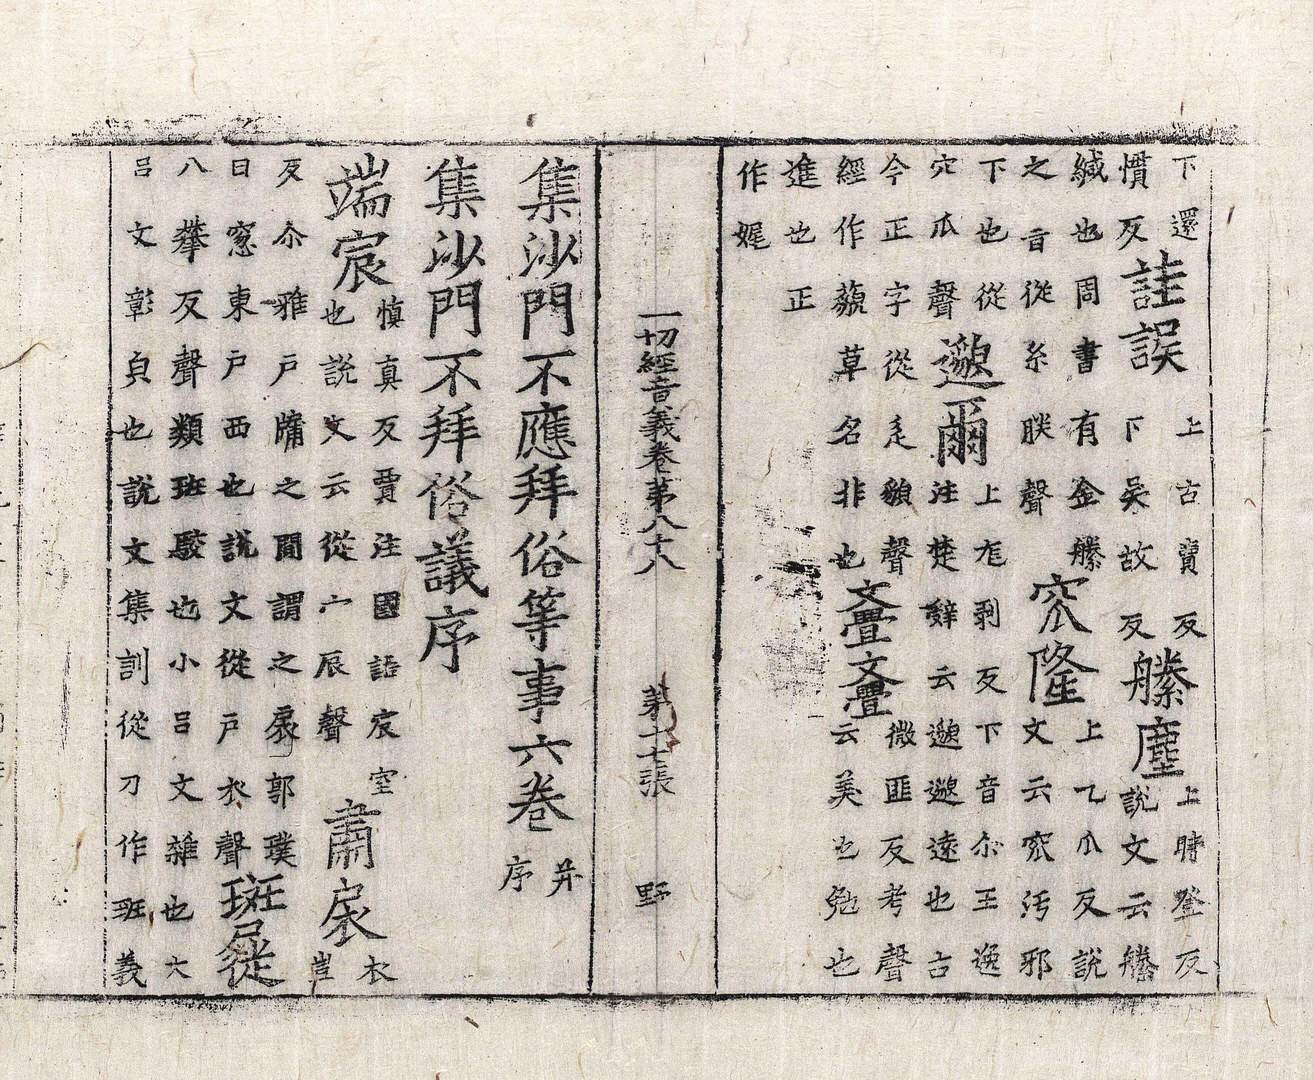 下還慣反詿誤上古賣反下吳故反縢塵上時登反說文云縢
緘也周書有金縢之音從糸朕聲窊隆上乙瓜反說文云窊污邪
下也從穴瓜聲邈爾上尨剥反下音尒王逸注楚辭云邈邈遠也古
今正字從辵䫉聲經作藐草名非也亹亹微匪反考聲云美也勉也
進也正作娓
一切經音義卷第八十八 第十七張 野
集沙門不應拜俗等事六卷并序
集沙門不拜俗議序
端宸慎真反賈注國語宸室也說文云從宀辰聲肅扆衣豈
反尒雅戶牖之間謂之扆郭璞曰窓東戶西也說文從戶衣聲斑
八攀反聲類班駮也小呂文雜也六呂文彰皃也說文集訓從刀作班義